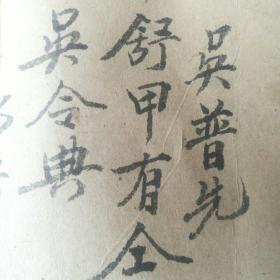 吳普先
舒甲有仝
吳令典